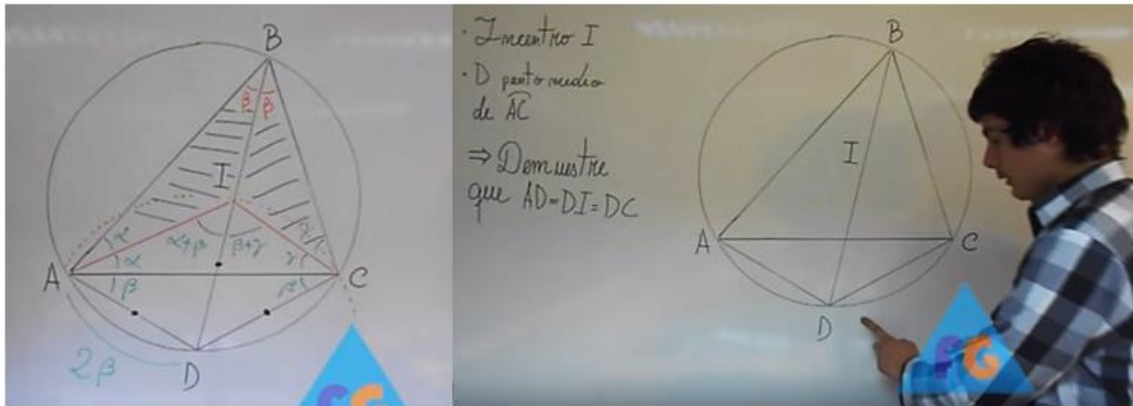 B
β β
I
α α+β β+γ γ
A α γ C
β β
2β
D
FG
· Incentro I
· D punto medio
de AC
⇒ Demuestre
que AD=DI=DC
B
I
A
C
D
FG